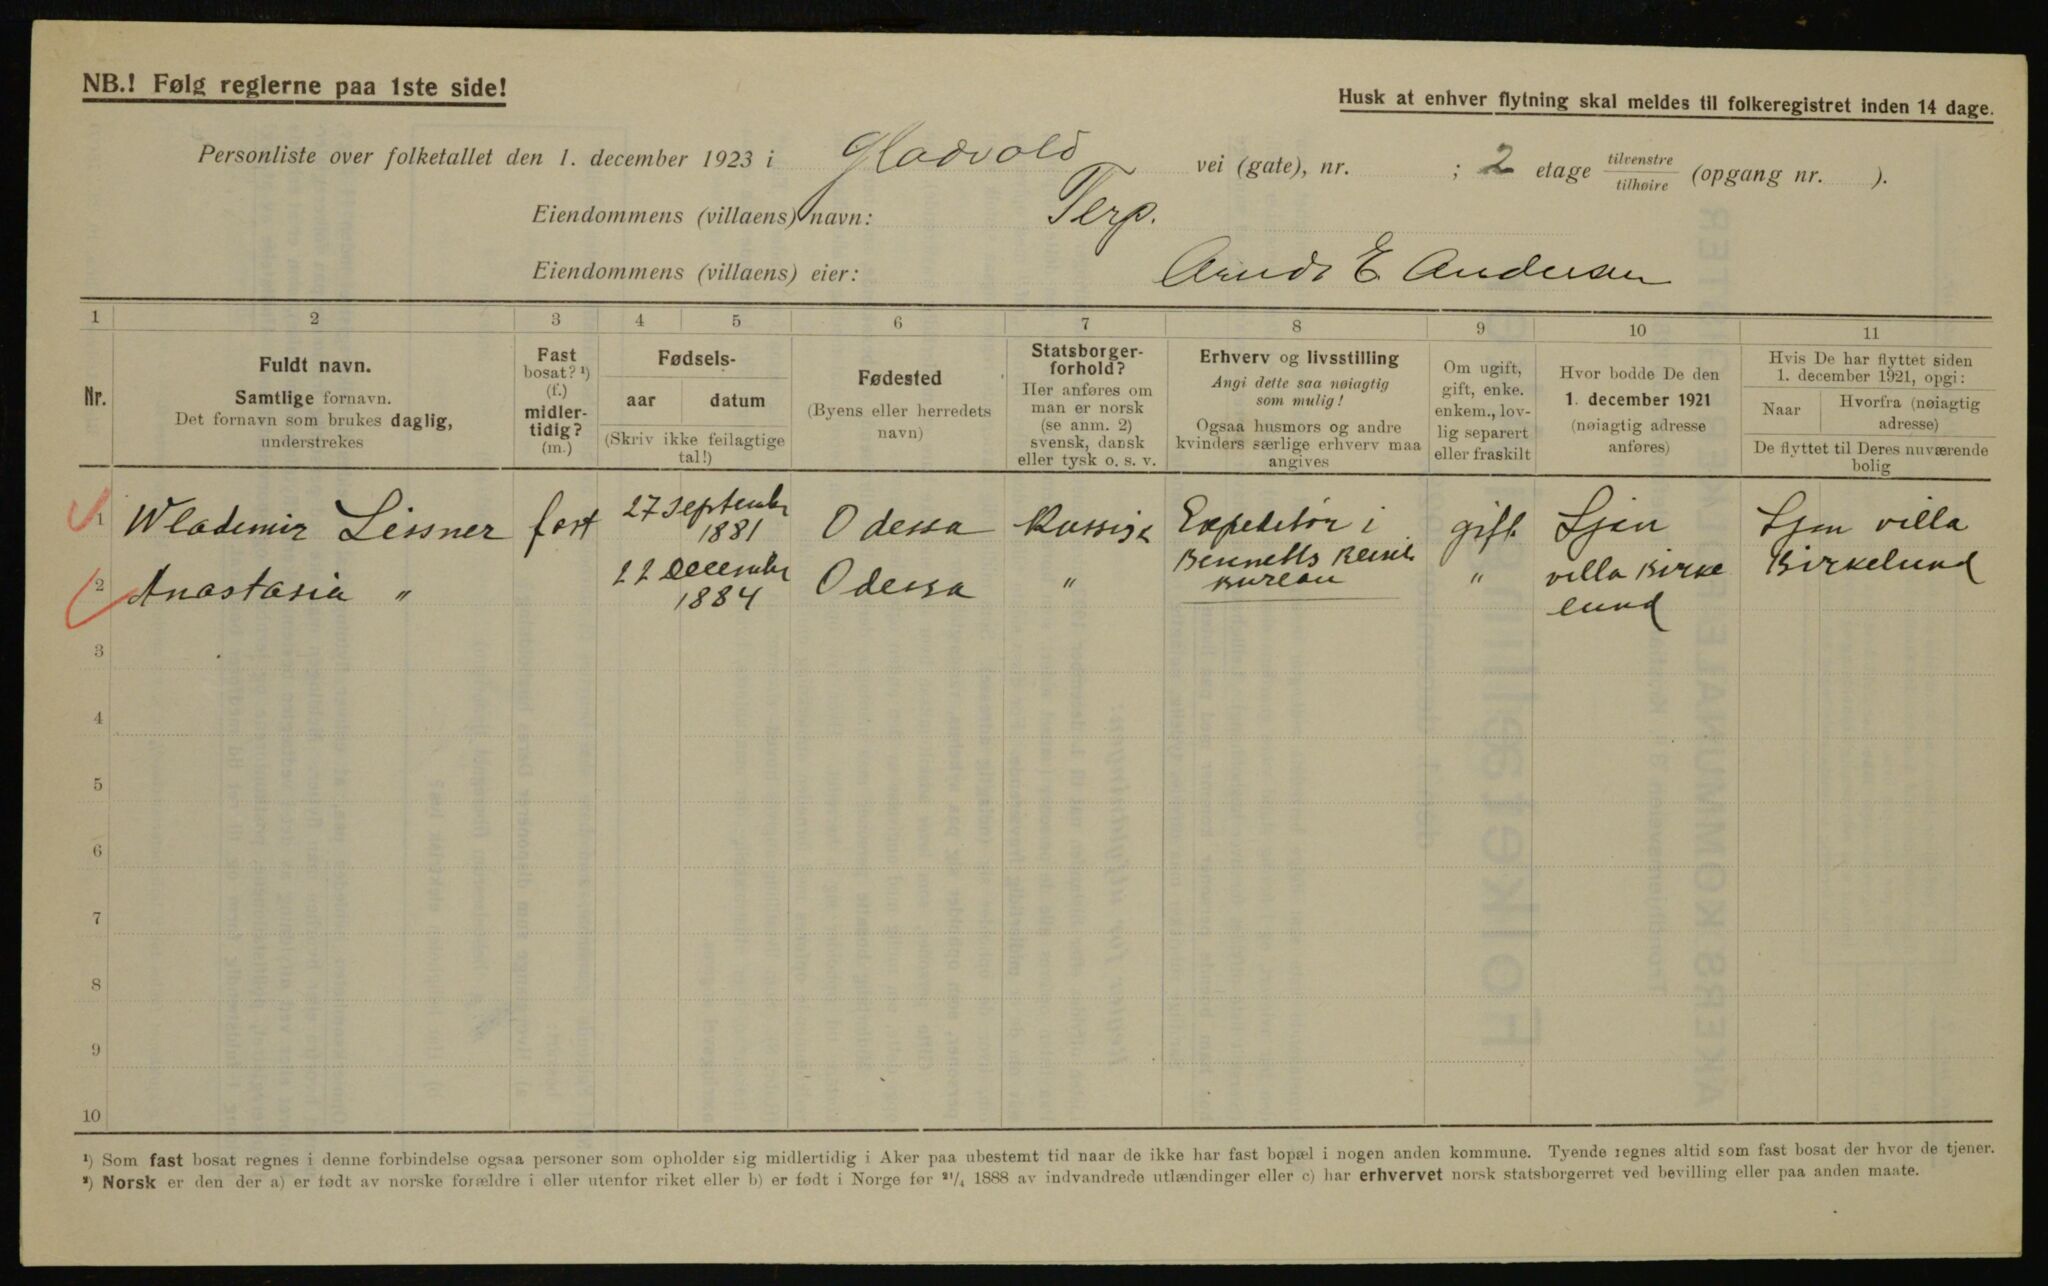 NB.! Følg reglerne paa 1ste side!
Husk at enhver flytning skal meldes til folkeregistret inden 14 dage.
Personliste over folketallet den 1. december 1923 i Gladvold vei (gate), nr. ; 2 etage tilvenstre/tilhøire (opgang nr. ).
Eiendommens (villaens) navn: Terp.
Eiendommens (villaens) eier: Arndt E Andersen
1 2 3 4 5 6 7 8 9 10 11
Nr.
Fuldt navn.
Samtlige fornavn.
Det fornavn som brukes daglig,
understrekes
Fast
bosat? ¹)
(f.)
midler-
tidig?
(m.)
Fødsels-
aar datum
(Skriv ikke feilagtige
tal!)
Fødested
(Byens eller herredets
navn)
Statsborger-
forhold?
Her anføres om
man er norsk
(se anm. 2)
svensk, dansk
eller tysk o. s. v.
Erhverv og livsstilling
Angi dette saa nøiagtig
som mulig!
Ogsaa husmors og andre
kvinders særlige erhverv maa
angives
Om ugift,
gift, enke.
enkem., lov-
lig separert
eller fraskilt
Hvor bodde De den
1. december 1921
(nøiagtig adresse
anføres)
Hvis De har flyttet siden
1. december 1921, opgi:
Naar
Hvorfra (nøiagtig
adresse)
De flyttet til Deres nuværende
bolig
1 Wlademir Lissner fast 27 September 1881 Odessa Russisk Expeditør i Bennetts Reise Bureau gift Ljan villa Birke lund Ljan villa Birkelund
2 Anastasia " 22 December 1884 Odessa " "
3
4
5
6
7
8
9
10
¹) Som fast bosat regnes i denne forbindelse ogsaa personer som opholder sig midlertidig i Aker paa ubestemt tid naar de ikke har fast bopæl i nogen anden kommune. Tyende regnes altid som fast bosat der hvor de tjener.
²) Norsk er den der a) er født av norske forældre i eller utenfor riket eller b) er født i Norge før 21/4 1888 av indvandrede utlændinger eller c) har erhvervet norsk statsborgerret ved bevilling eller paa anden maate.